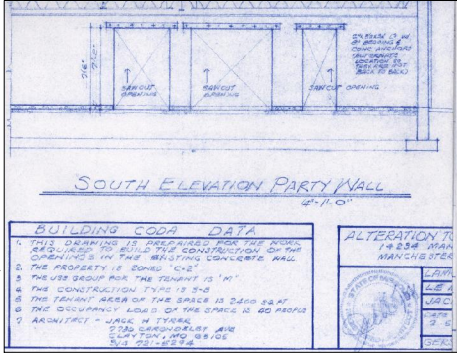 7'-0"
SAW CUT
OPENING
SAW CUT
OPENING
SAW CUT OPENING
SOUTH ELEVATION PARTY WALL
BUILDING CODA DATA
1. THIS DRAWING IS PREPAIRED FOR THE WORK
REQUIRED TO BUILD THE CONSTRUCTION OF THE
OPENINGS IN THE EXISTING CONCRETE WALL
2. THE PROPERTY IS ZONED "C-2"
3 THE USE GROUP FOR THE TENANT IS "M"
4 THE CONSTRUCTION TYPE IS 5-B
5 THE TENANT AREA OF THE SPACE IS 2400 SQ FT
6 THE OCCUPANCY LOAD OF THE SPACE IS 60 PEOPLE
7 ARCHITECT - JACK H TYRER
CLAYTON, MO 63105
ALTERATION TO
14234 MAN
MANCHESTER
STATE OF
LE
JAC
DATE